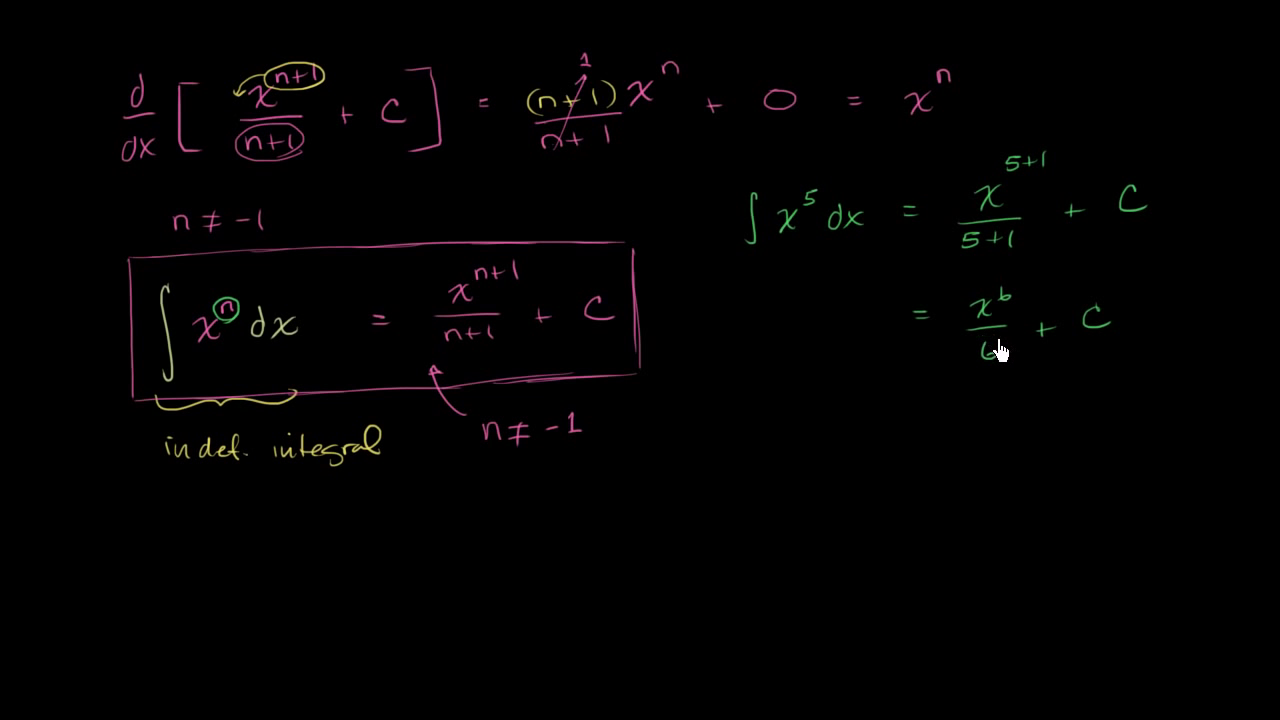 d/dx [ x^(n+1)/(n+1) + C ] = (n+1)x^n/(n+1) 1 + 0 = x^n
n ≠ -1
∫ x^n dx = x^(n+1)/(n+1) + C
n ≠ -1
indef. integral
∫ x^5 dx = x^(5+1)/(5+1) + C
= x^6/6 + C